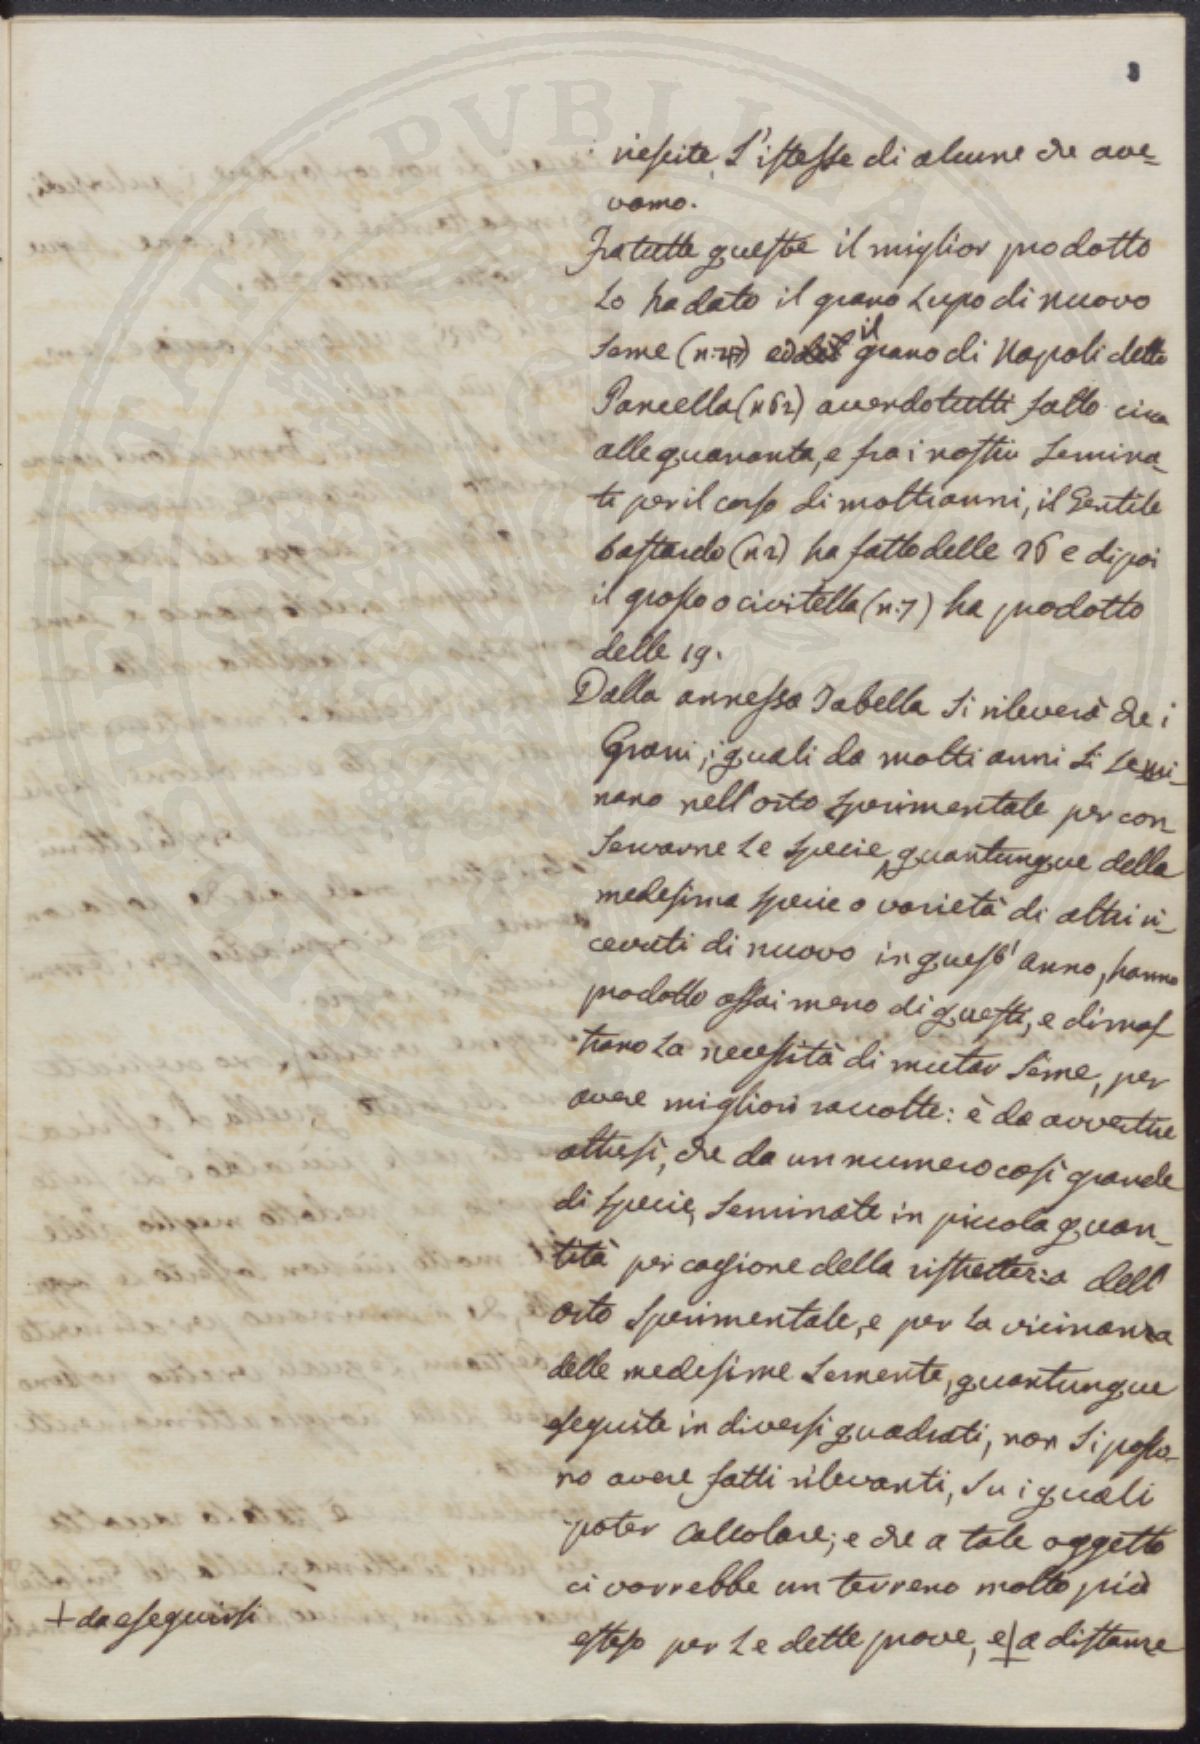 3
riescite, l'istesse di alcune che ave-
vamo.
Fra tutte queste il miglior prodotto
lo ha dato il grano Lupo di nuovo
seme (n:) ed il grano di Napoli detto
Parcella (n 62) avendo tutti fatto circa
alle quaranta, e fra i nostri semina-
ti per il corso di molti anni, il Gentile
bastardo (n 2) ha fatto delle 26 e dipoi
il grosso o civitella (n: 7) ha prodotto
delle 19.
Dalla annessa Tabella si rileverà che i
Grani, i quali da molti anni si semi-
nano nell'orto sperimentale per con-
servarne le specie, quantunque della
medesima specie o varietà di altri ri-
cevuti di nuovo in quest'anno, hanno
prodotto assai meno di questi, e dimos
trano la necessità di mutar seme, per
avere migliori raccolte: è da avvertire
altresì, che da un numero così grande
di specie, seminate in piccola quan-
tità per cagione della ristrettezza dell'
orto sperimentale, e per la vicinanza
delle medesime semente, quantunque
eseguite in diversi quadrati, non si posso-
no avere fatti rilevanti, su i quali
poter calcolare; e che a tale oggetto
ci vorrebbe un terreno molto più
esteso per le dette prove, e + a distanze
+ da eseguirsi